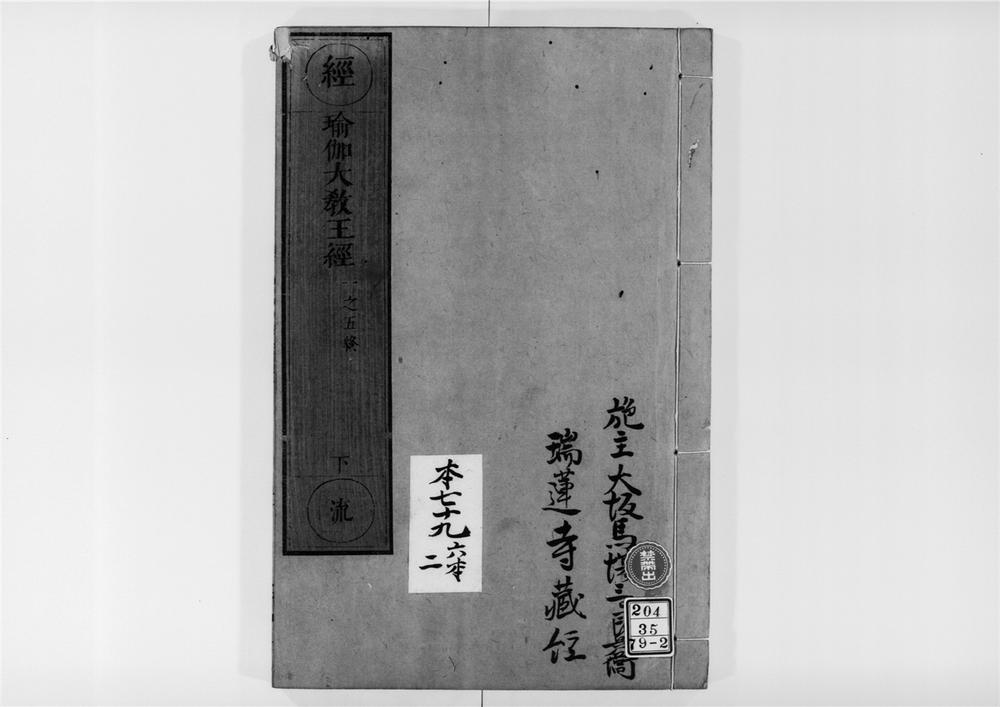 施主大坂馬場三
瑞蓮寺藏
禁帶出
204
35
79-2
本七十九
六本
二
經
瑜伽大教王經
一之五終
下
流